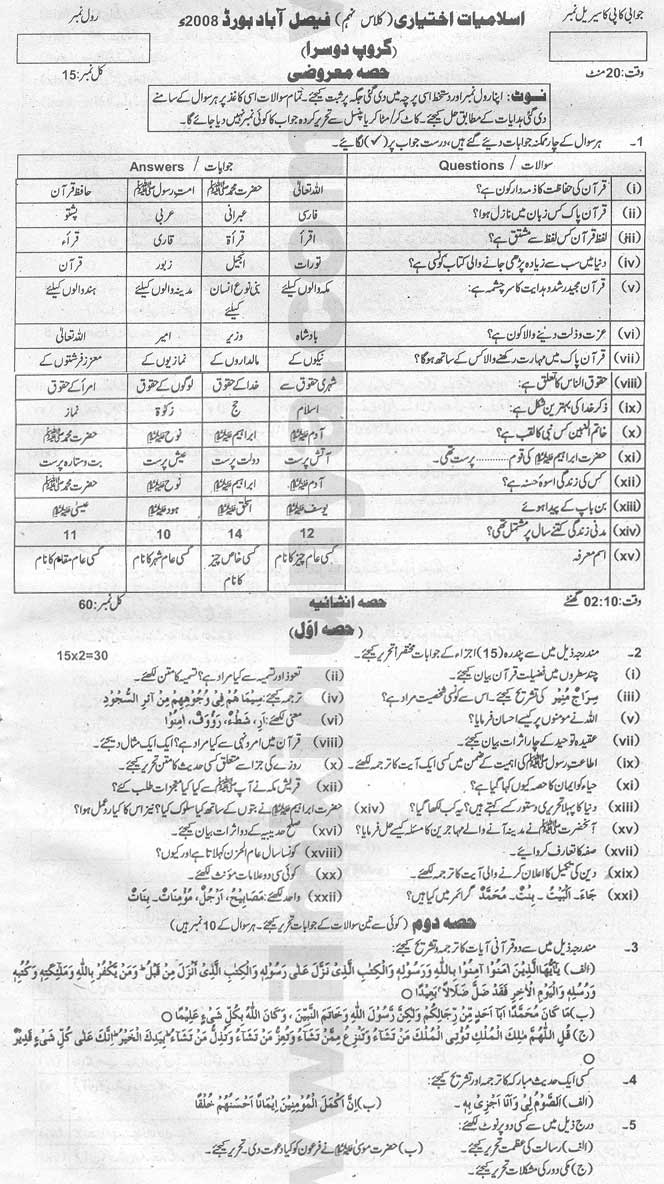 جوابی کاپی کا سیریل نمبر
اسلامیات اختیاری (کلاس نہم) فیصل آباد بورڈ 2008ء
رول نمبر
(گروپ دوسرا)
وقت: 20 منٹ
حصہ معروضی
کل نمبر: 15
نوٹ: اپنا رول نمبر اور دستخط اسی پرچہ میں دی گئی جگہ پر ثبت کیجئے۔ تمام سوالات اسی کاغذ پر ہر سوال کے سامنے
دی گئی ہدایات کے مطابق حل کیجئے۔ کاٹ کر/مٹا کر یا پنسل سے تحریر کردہ جواب کا کوئی نمبر نہیں دیا جائے گا۔
1- ہر سوال کے چار ممکنہ جوابات دیئے گئے ہیں، درست جواب پر (✓) لگائیے۔
سوالات / Questions جوابات / Answers
(i) قرآن کی حفاظت کا ذمہ دار کون ہے؟ اللہ تعالیٰ حضرت محمد ﷺ امت رسول ﷺ حافظ قرآن
(ii) قرآن پاک کس زبان میں نازل ہوا؟ فارسی عبرانی عربی پشتو
(iii) لفظ قرآن کس لفظ سے مشتق ہے؟ اقرأ قرأۃ قاری قراء
(iv) دنیا میں سب سے زیادہ پڑھی جانے والی کتاب کونسی ہے؟ تورات انجیل زبور قرآن
(v) قرآن مجید رشد و ہدایت کا سرچشمہ ہے: مکہ والوں کیلئے بنی نوع انسان کیلئے مدینہ والوں کیلئے ہند والوں کیلئے
(vi) عزت و ذلت دینے والا کون ہے؟ بادشاہ وزیر امیر اللہ تعالیٰ
(vii) قرآن پاک میں مہارت رکھنے والا کس کے ساتھ ہوگا؟ نیکوں کے مالداروں کے نمازیوں کے معزز فرشتوں کے
(viii) حقوق الناس کا تعلق ہے: شہری حقوق سے خدا کے حقوق لوگوں کے حقوق امراء کے حقوق
(ix) ذکر خدا کی بہترین شکل ہے: اسلام حج زکوٰۃ نماز
(x) خاتم النبین کس نبی کا لقب ہے؟ آدم ابراہیم نوح حضرت محمد ﷺ
(xi) حضرت ابراہیم کی قوم .......... پرست تھی۔ آتش پرست دولت پرست عیش پرست بت و ستارہ پرست
(xii) کس کی زندگی اسوۂ حسنہ ہے؟ آدم ابراہیم نوح حضرت محمد ﷺ
(xiii) بن باپ کے پیدا ہوئے یوسف اسحٰق ہود عیسیٰ
(xiv) مدنی زندگی کتنے سال پر مشتمل تھی؟ 12 14 10 11
(xv) اسم معرفہ کسی عام چیز کا نام کسی خاص چیز کا نام کسی عام شہر کا نام کسی عام مقام کا نام
وقت: 02:10 گھنٹے
حصہ انشائیہ
کل نمبر: 60
(حصہ اوّل)
2- مندرجہ ذیل میں سے پندرہ (15) اجزاء کے جوابات مختصراً تحریر کیجئے۔ 15x2=30
(i) چند سطروں میں فضیلت قرآن بیان کیجئے۔ (ii) تعوذ اور تسمیہ سے کیا مراد ہے؟ تسمیہ کا متن لکھئے۔
(iii) سِرَاجٍ مُنِیْر کی تشریح کیجئے۔ اس سے کونسی شخصیت مراد ہے؟ (iv) ترجمہ کیجئے: سِیْمَا ھُمْ فِیْ وُجُوْھِھِمْ مِنْ اَثَرِ السُّجُوْدِ
(v) اللہ نے مومنوں پر کیسے احسان فرمایا؟ (vi) معنی لکھئے: اَزَر، شَطْئَہٗ، رَؤُوْفٌ، اٰمَنُوْا
(vii) عقیدہ توحید کے چار اثرات بیان کیجئے۔ (viii) قرآن میں امر و نہی سے کیا مراد ہے؟ ایک ایک مثال دیجئے۔
(ix) اطاعت رسول ﷺ کی اہمیت کے ضمن میں کسی ایک آیت کا ترجمہ لکھئے۔ (x) روزے کی جزا سے متعلق کسی حدیث کا متن تحریر کیجئے۔
(xi) حیاء کو ایمان کا حصہ کیوں کہا گیا ہے؟ (xii) قریش مکہ نے آپ ﷺ سے کیا کیا معجزات طلب کئے؟
(xiii) دنیا کا پہلا تحریری دستور کسے کہتے ہیں؟ یہ کب لکھا گیا؟ (xiv) حضرت ابراہیم نے بتوں کے ساتھ کیا سلوک کیا؟ نیز اس کا کیا رد عمل ہوا؟
(xv) آنحضرت ﷺ نے مدینہ آنے والے مہاجرین کا مسئلہ کیسے حل فرمایا؟ (xvi) صلح حدیبیہ کے دو اثرات بیان کیجئے۔
(xvii) صفہ کا تعارف کروائیے۔ (xviii) کونسا سال عام الحزن کہلاتا ہے اور کیوں؟
(xix) دین کی تکمیل کا اعلان کرنے والی آیت کا ترجمہ لکھئے۔ (xx) کوئی سی دو علامات مؤنث لکھئے۔
(xxi) جَاءَ۔ اَلْبَیْتُ۔ بِنْتٌ۔ مُحَمَّدٌ گرائمر میں کیا ہیں؟ (xxii) واحد لکھئے: مَصَابِیْحُ، اَرْجُلٌ، مُؤْمِنَاتٌ، بَنَاتٌ
حصہ دوم (کوئی سے تین سوالات کے جوابات تحریر کیجئے۔ ہر سوال کے 10 نمبر ہیں)
3- مندرجہ ذیل میں سے دو قرآنی آیات کا ترجمہ و تشریح کیجئے:
(الف) یٰٓاَیُّھَا الَّذِیْنَ اٰمَنُوْا اٰمِنُوْا بِاللہِ وَرَسُوْلِہٖ وَالْکِتٰبِ الَّذِیْ نَزَّلَ عَلٰی رَسُوْلِہٖ وَالْکِتٰبِ الَّذِیْ اَنْزَلَ مِنْ قَبْلُ وَمَنْ یَّکْفُرْ بِاللہِ وَمَلٰٓئِکَتِہٖ وَکُتُبِہٖ
وَرُسُلِہٖ وَالْیَوْمِ الْاٰخِرِ فَقَدْ ضَلَّ ضَلٰلًا بَعِیْدًا ○
(ب) مَا کَانَ مُحَمَّدٌ اَبَا اَحَدٍ مِّنْ رِّجَالِکُمْ وَلٰکِنْ رَّسُوْلَ اللہِ وَخَاتَمَ النَّبِیّٖنَ، وَکَانَ اللہُ بِکُلِّ شَیْءٍ عَلِیْمًا ○
(ج) قُلِ اللّٰھُمَّ مٰلِکَ الْمُلْکِ تُؤْتِی الْمُلْکَ مَنْ تَشَاءُ وَتَنْزِعُ الْمُلْکَ مِمَّنْ تَشَاءُ وَتُعِزُّ مَنْ تَشَاءُ وَتُذِلُّ مَنْ تَشَاءُ بِیَدِکَ الْخَیْرُ اِنَّکَ عَلٰی کُلِّ شَیْءٍ قَدِیْرٌ
○
4- کسی ایک حدیث مبارکہ کا ترجمہ اور تشریح کیجئے:
(الف) اَلصَّوْمُ لِیْ وَاَنَا اَجْزِیْ بِہٖ۔ (ب) اِنَّ اَکْمَلَ الْمُؤْمِنِیْنَ اِیْمَانًا اَحْسَنُھُمْ خُلُقًا
5- درج ذیل میں سے کسی دو پر نوٹ لکھئے:
(الف) رسالت کی عظمت تحریر کیجئے۔ (ب) حضرت موسیٰ نے فرعون کو کیا دعوت دی۔ تحریر کیجئے۔
(ج) مکی دور کی مشکلات تحریر کیجئے۔